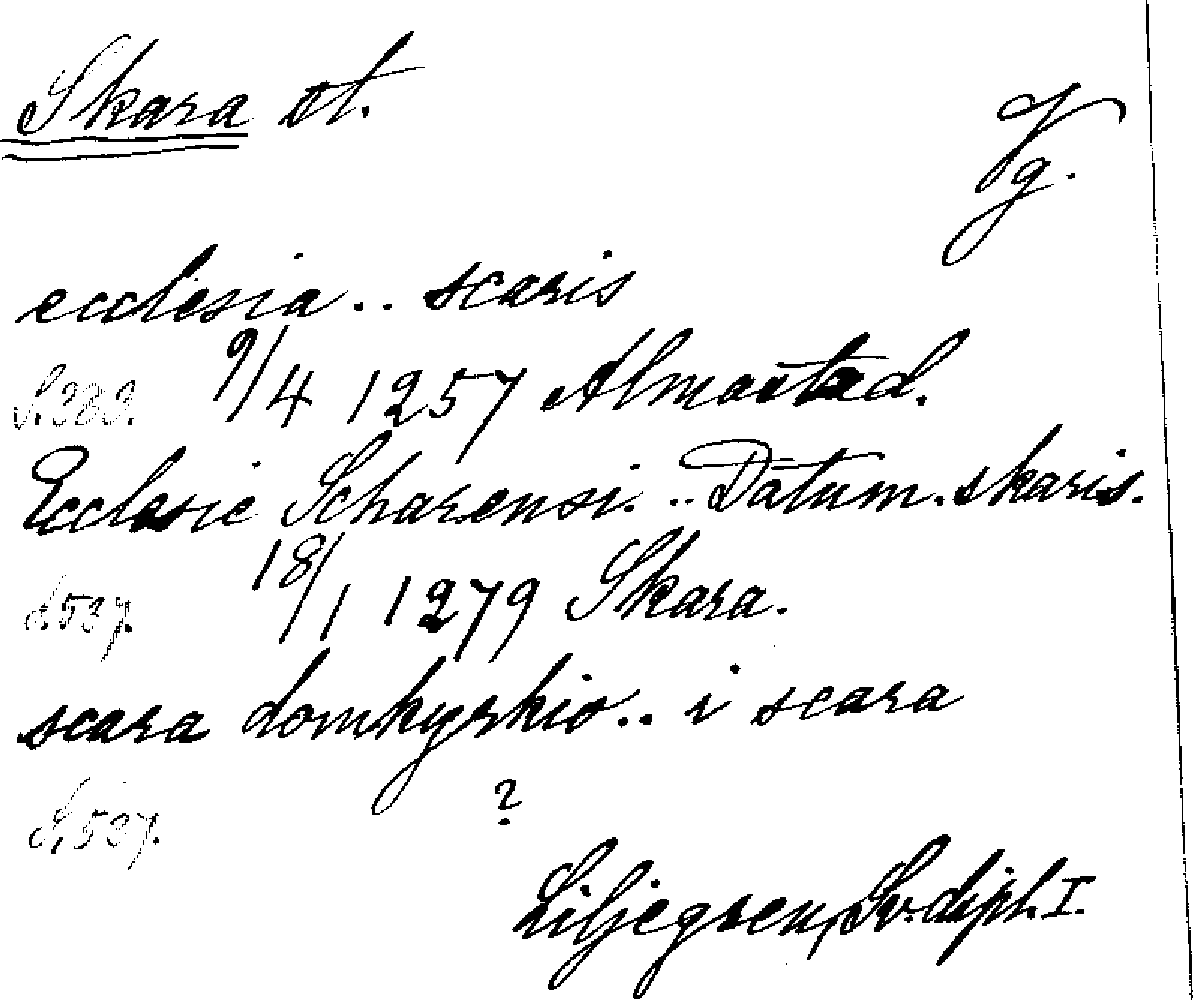 Skara st. Vg.
ecclesia .. scaris
S. 389. 9/4 1257 Almostad.
Ecclesie Scharensi. .. Datum. skaris.
S. 537. 18/1 1279 Skara.
scara domkyrkio .. i scara
S. 537. ?
Liljegren, Sv. dipl. I.